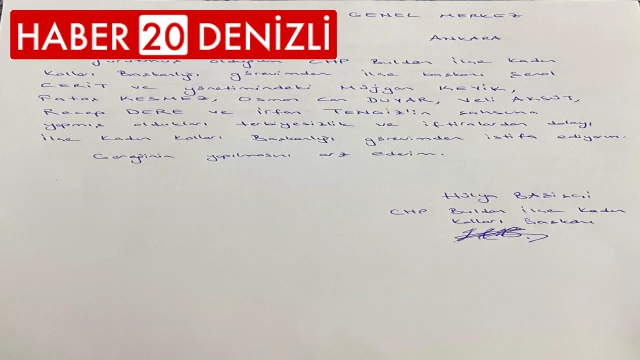 HABER 20 DENİZLİ
GENEL MERKEZ
ANKARA
Yürütmüş olduğum CHP Buldan İlçe Kadın
Kolları Başkanlığı görevimden ilçe başkanı Şenol
CERİT ve yönetimindeki Müjgan KEYİK,
KESMEZ, Osman Can DUYAR, Veli AKGÜT,
Recep DERE ve İrfan TENGİZ'in şahsıma
yapmış oldukları terbiyesizlik ve iftiralardan dolayı
ilçe Kadın Kolları Başkanlığı görevimden istifa ediyorum.
Gereğinin yapılmasını arz ederim.
Hülya
CHP Buldan İlçe Kadın
Kolları Başkanı